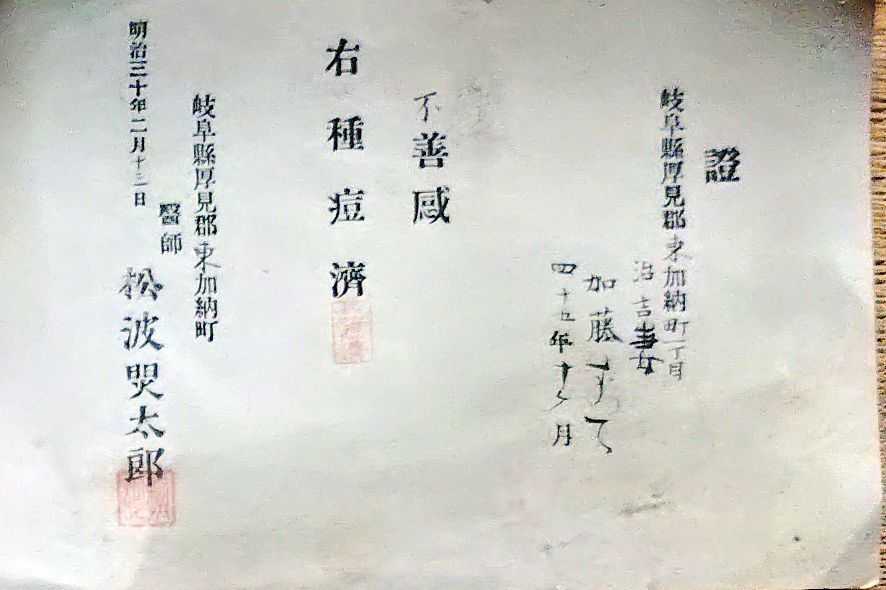 證
岐阜縣厚見郡東加納町一丁目
治吉妻
加藤すて
四十五年十ヶ月
不善感
右種痘濟
岐阜縣厚見郡東加納町
醫師 松波炅太郎
明治三十年二月十二日